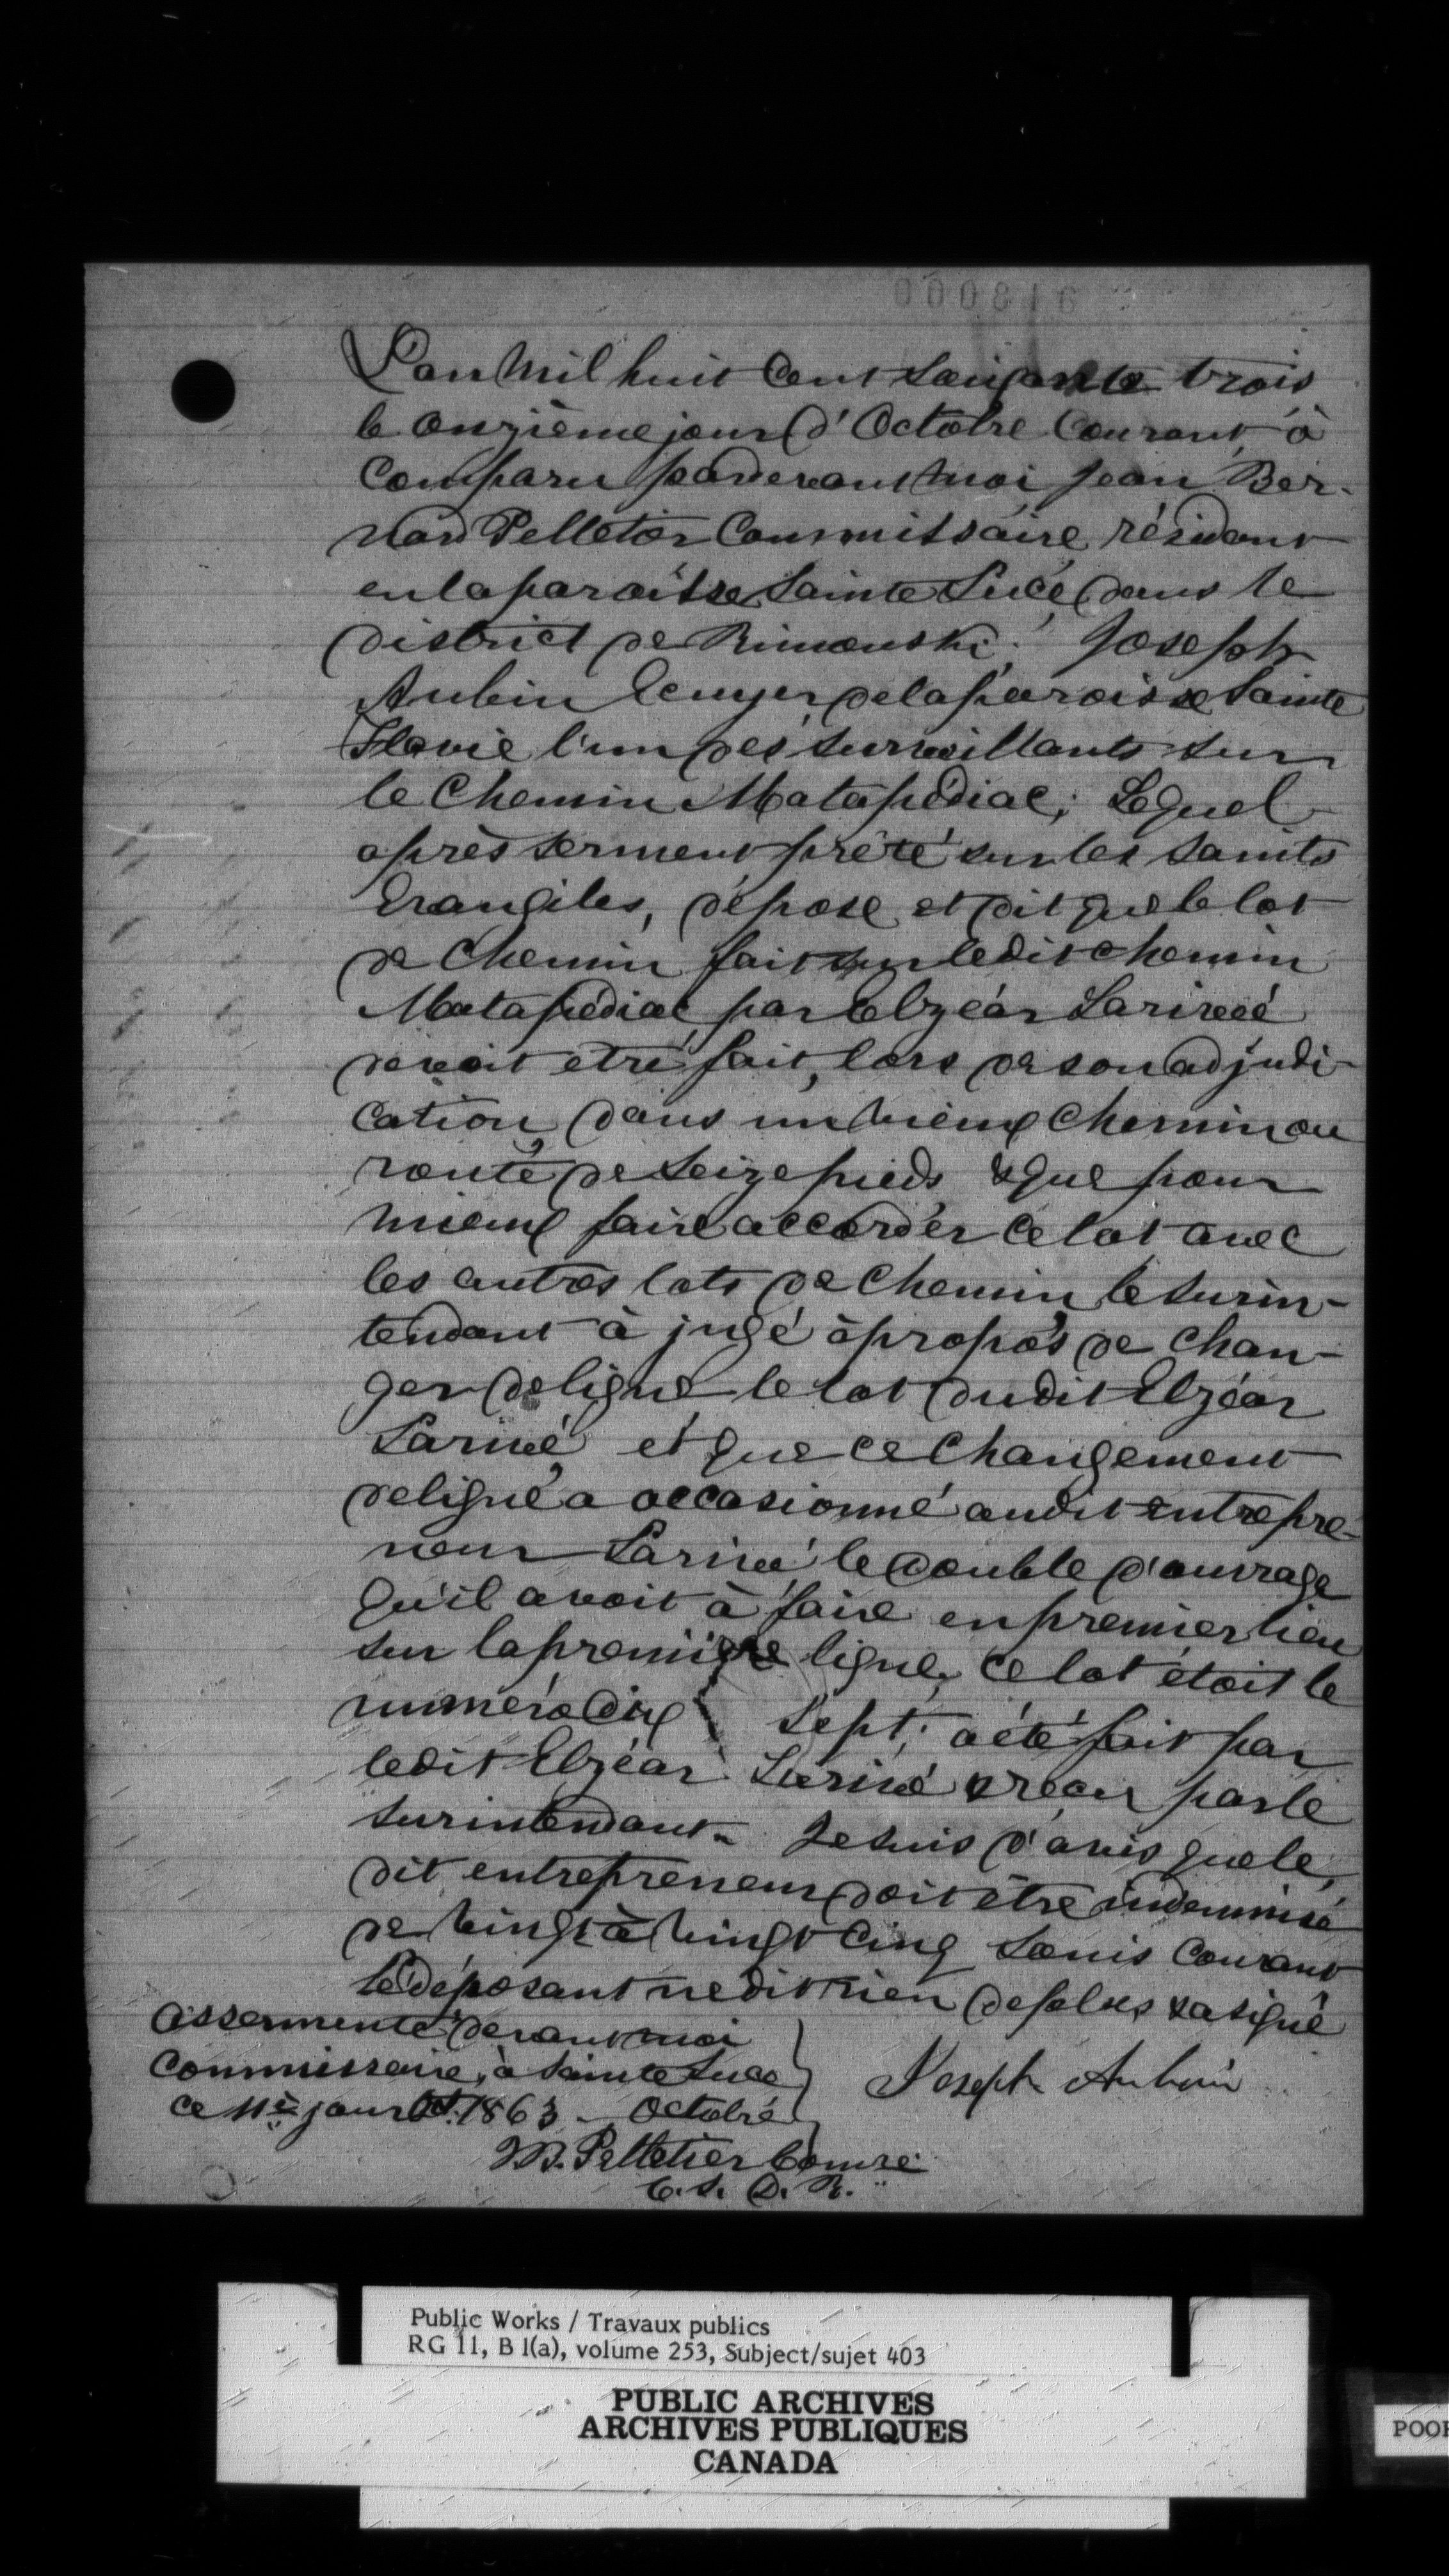 000816
L'an Mil huit Cent Soixante trois
le onzième jour d'Octobre Courant, à
Comparu pardevant moi Jean Ber-
nard Pelletier Commissaire, résidant
en la paroisse Sainte Luce, dans le
district de Rimouski. Joseph
Aubin Ecuyer de la paroisse Sainte
Flavie l'un des surveillants sur
le Chemin Matapédiac; Lequel
après serment prêté sur les Saints
Evangiles, dépose et dit que le lot
de Chemin fait sur ledit chemin
Matapédiac par Elzéar Larivée
devait être fait, lors de son adjudi-
cation, dans un vieux Chemin ou
route de Seize pieds & que pour
mieux faire accorder ce lot avec
les autres lots de Chemin, le surin-
tendant à jugé àpropos de chan-
ger de ligne le lot dudit Elzéar
Larivé, et que ce changement
de ligne a occasionné audit entrepre-
neur Larivé le double d'ouvrage
qu'il avoit à faire en premier lieu
sur la première ligne, ce lot étoit le
numéro dix sept; a été fait par
ledit Elzéar Larivé & reçu par le
surintendant. Je suis d'avis que le
dit entrepreneur doit être indemnisé
de Vingt à Vingt Cinq Louis Courant
le déposant ne dit rien de plus & a signé
Assermenté devant moi
Commissaire, à Sainte Luce
ce 11è jour 1863 - Octobre
Joseph Aubin
J.B. Pelletier Comre
C. S. D. R.
Public Works / Travaux publics
RG 11, B 1(a), volume 253, Subject/sujet 403
PUBLIC ARCHIVES
ARCHIVES PUBLIQUES
CANADA
POOR